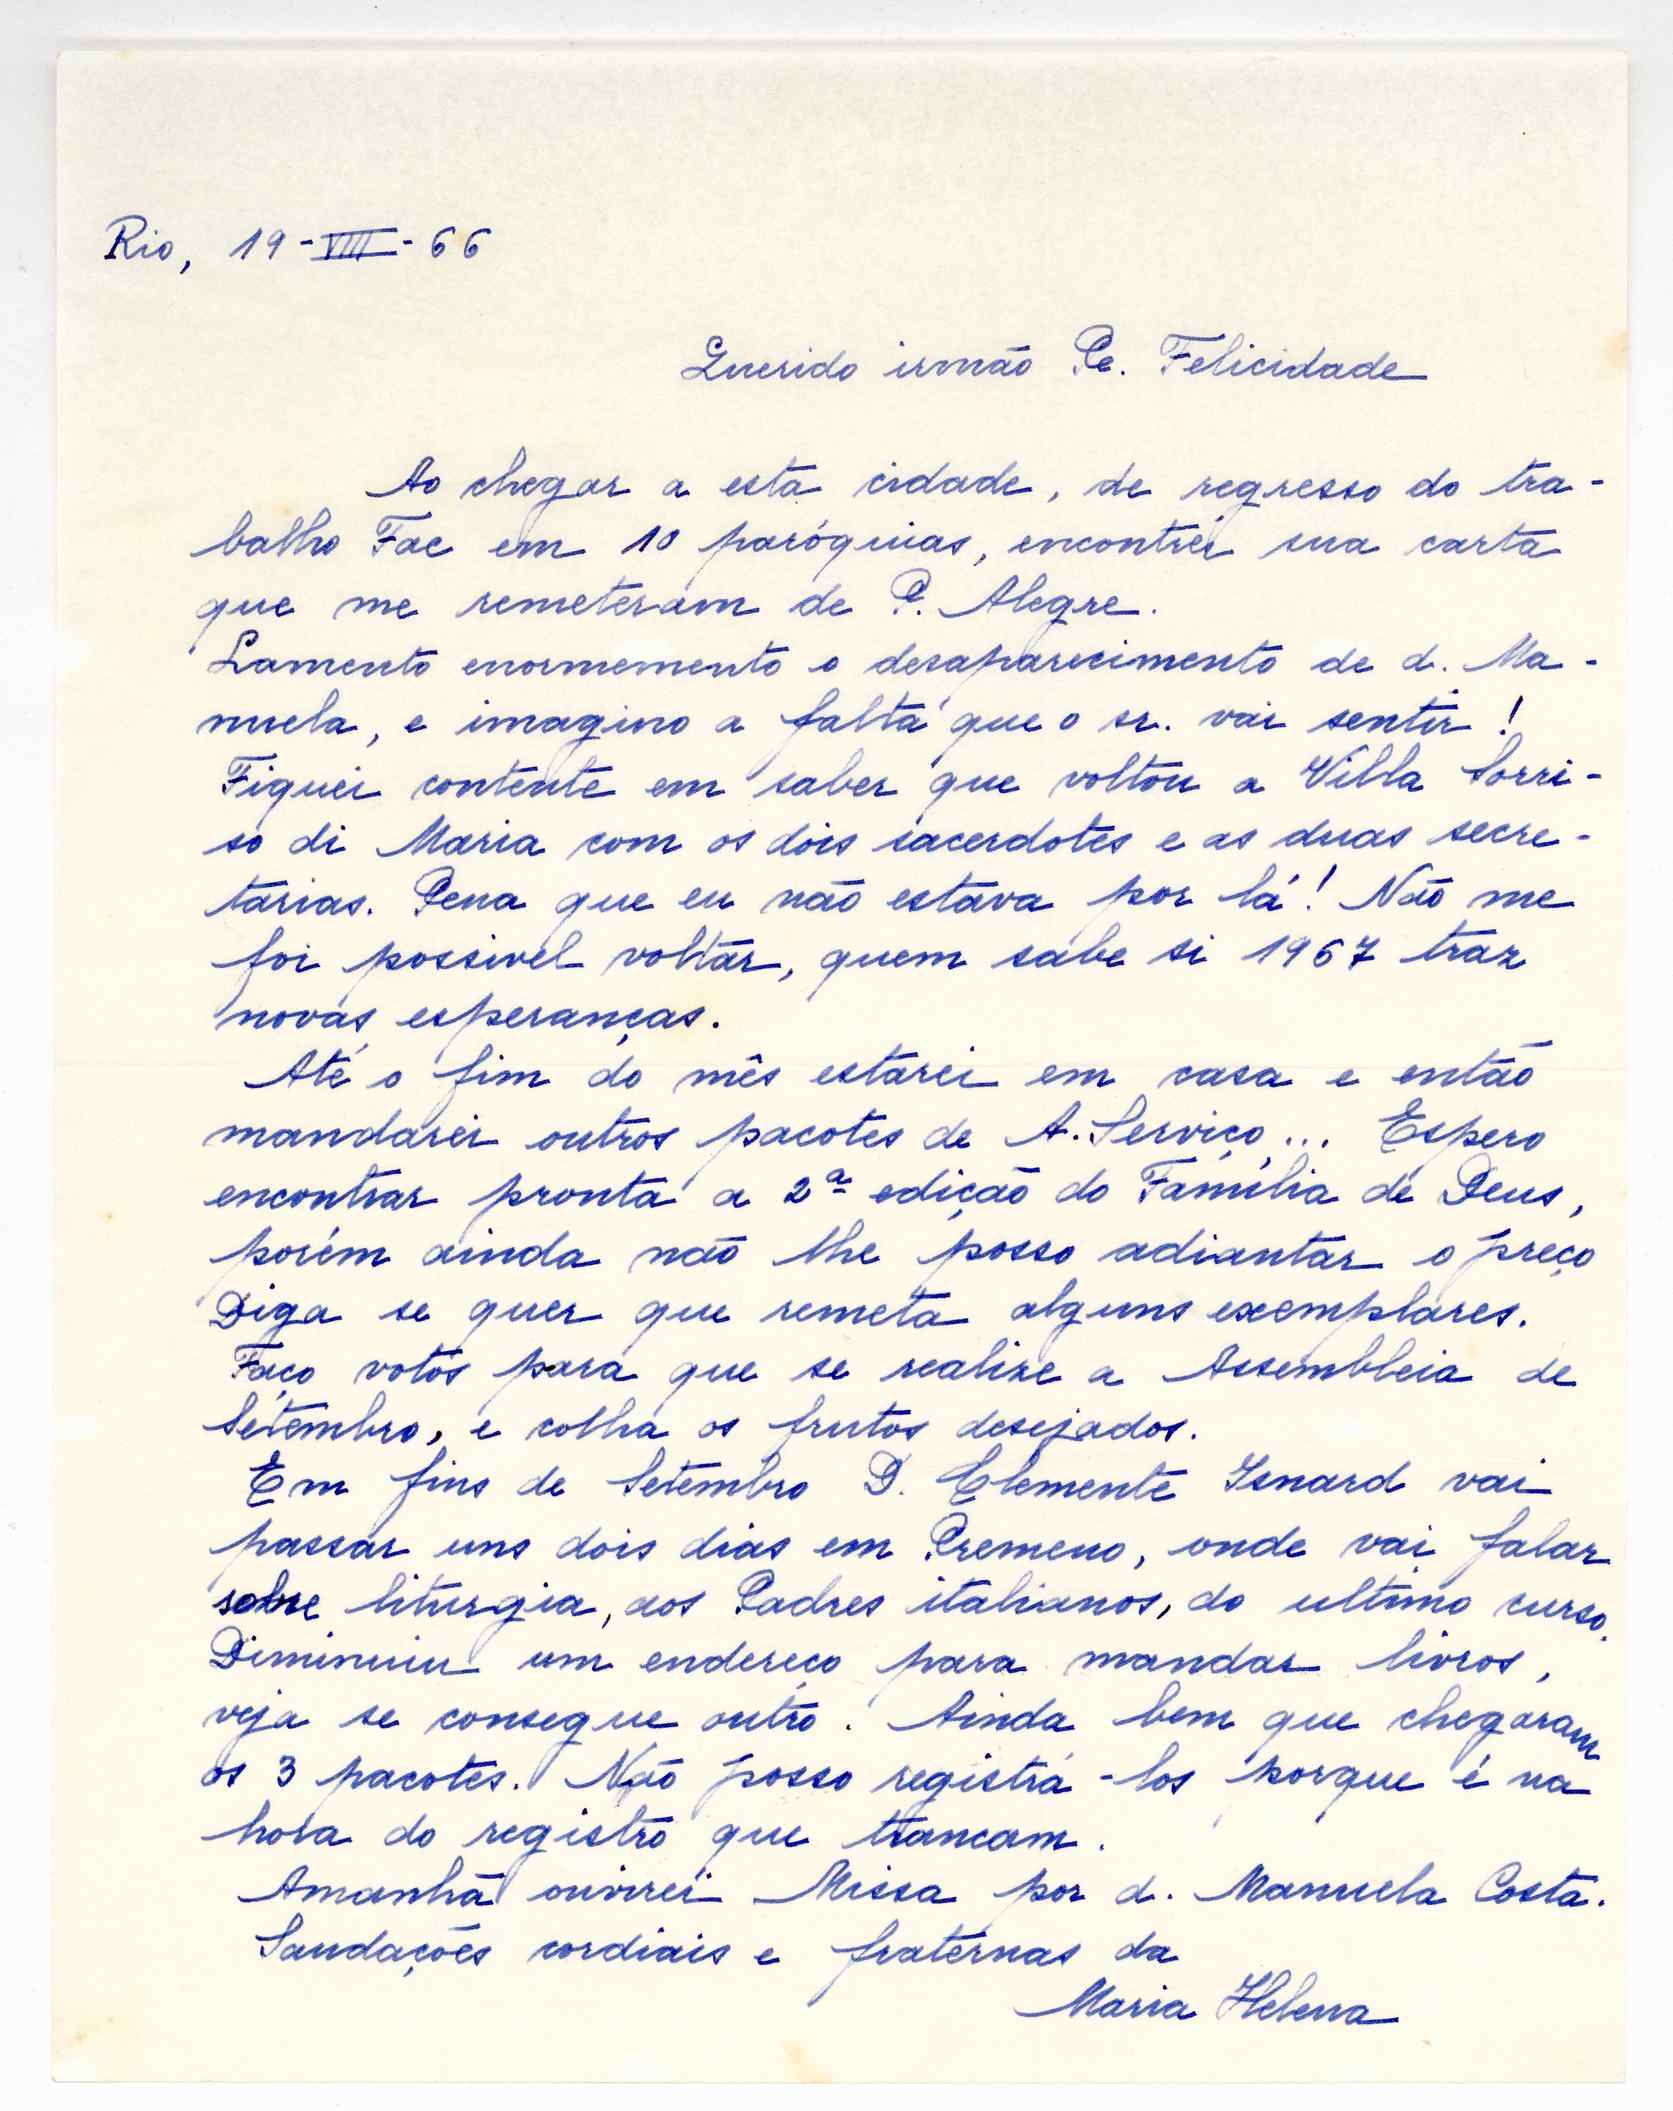 Rio, 19-VIII-66
Querido irmão Pe. Felicidade
Ao chegar a esta cidade, de regresso do tra-
balho Fac em 10 paróquias, encontrei sua carta
que me remeteram de P. Alegre.
Lamento enormemento o desaparecimento de d. Ma-
nuela, e imagino a falta que o sr. vai sentir!
Fiquei contente em saber que voltou a Villa Sorri-
so di Maria com os dois sacerdotes e as duas secre-
tarias. Pena que eu não estava por lá! Não me
foi possivel voltar, quem sabe si 1967 traz
novas esperanças.
Até o fim do mês estarei em casa e então
mandarei outros pacotes de A. Serviço... Espero
encontrar pronta a 2ª edição do Família de Deus,
porém ainda não lhe posso adiantar o preço
Diga se quer que remeta alguns exemplares.
Faço votos para que se realize a Assembleia de
Setembro, e colha os frutos desejados.
Em fins de Setembro D. Clemente Isnard vai
passar uns dois dias em Premeno, onde vai falar
sobre liturgia, aos Padres italianos, do ultimo curso.
Diminuiu um endereço para mandar livros,
veja se consegue outro. Ainda bem que chegaram
os 3 pacotes. Não posso registrá-los porque é na
hora do registro que trancam.
Amanhã ouvirei Missa por d. Manuela Costa.
Saudações cordiais e fraternas da
Maria Helena